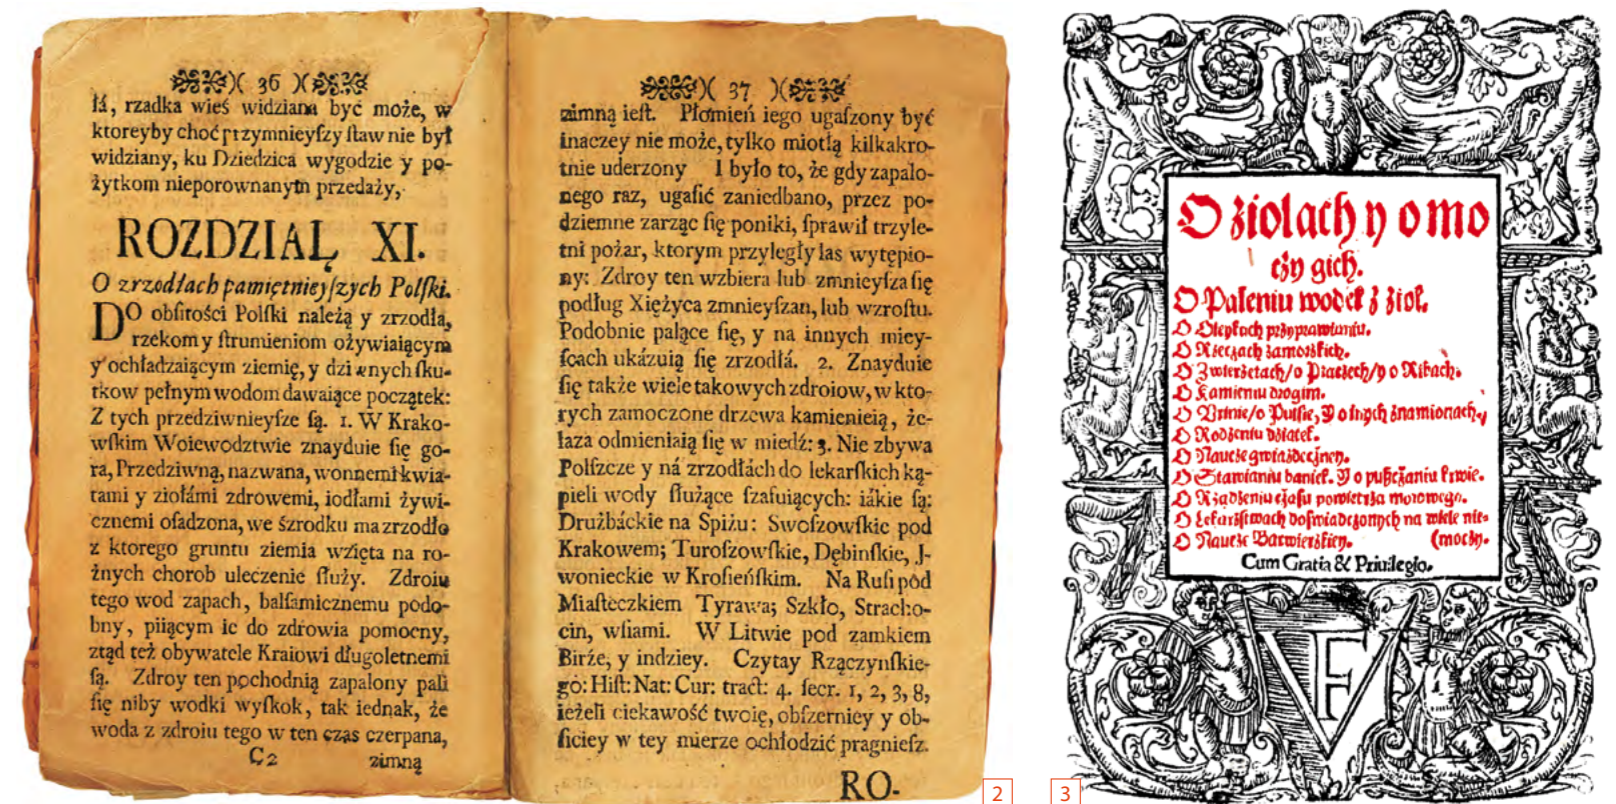 36
łá, rzadka wieś widziana być może, w
ktoreyby choć przymnieyſzy ſtaw nie był
widziany, ku Dziedzica wygodzie y po-
żytkom nieporownanym przedaży,
ROZDZIAŁ XI.
O zrzodłach pamiętnieyſzych Polſki.
DO obfitości Polſki należą y zrzodła,
rzekom y ſtrumieniom ożywiaiącym
y ochładzaiącym ziemię, y dziwnych ſku-
tkow pełnym wodom dawaiące początek:
Z tych przedziwnieyſze ſą. 1. W Krako-
wſkim Woiewodztwie znayduie ſię go-
ra, Przedziwną, nazwana, wonnemi kwia-
tami y ziołámi zdrowemi, iodłami żywi-
cznemi oſadzona, we śzrodku ma zrzodło
z ktorego gruntu ziemia wzięta na ro-
żnych chorob uleczenie ſłuży. Zdroiu
tego wod zapach, balſamicznemu podo-
bny, piiącym ie do zdrowia pomocny,
ztąd też obywatele Kraiowi długoletnemi
ſą. Zdroy ten pochodnią zapalony pali
ſię niby wodki wyſkok, tak iednak, że
woda z zdroiu tego w ten czas czerpana,
C2 zimną
37
zimną ieſt. Płomień iego ugaſzony być
inaczey nie może, tylko miotłą kilkakro-
tnie uderzony I było to, że gdy zapalo-
nego raz, ugaſić zaniedbano, przez po-
dziemne zarząc ſię poniki, ſprawił trzyle-
tni pożar, ktorym przyległy las wytępio-
ny: Zdroy ten wzbiera lub zmnieyſza ſię
podług Xiężyca zmnieyſzan, lub wzroſtu.
Podobnie palące ſię, y na innych miey-
ſcach ukázuią ſię zrzodłá. 2. Znayduie
ſię także wiele takowych zdroiow, w kto-
rych zamoczone drzewa kamienieią, że-
laza odmieniaią ſię w miedź: 3. Nie zbywa
Polſzcze y ná zrzodłách do lekarſkich ką-
pieli wody ſłużące ſzafuiących: iákie ſą:
Drużbáckie na Spiżu: Swoſzowſkie pod
Krakowem; Turoſzowſkie, Dębinſkie, J-
wonieckie w Kroſieńſkim. Na Ruſi pod
Miaſteczkiem Tyrawa; Szkło, Stracho-
cin, wſiami. W Litwie pod zamkiem
Birże, y indziey. Czytay Rzączynſkie-
go: Hiſt: Nat: Cur: tract: 4. ſecr. 1, 2, 3, 8,
ieżeli ciekawość twoię, obſzerniey y ob-
ficiey w tey mierze ochłodzić pragnieſz.
RO-
2
3
O ziolach y o mo
czy gich.
O Paleniu wodek z ziol.
O Oleykach przyprawianiu.
O Rzeczach zamorskich.
O Zwierzetach/o Ptaczech/y o Ribach.
O Kamieniu drogim.
O Urinie/o Pulsie, Y o inych znamionach.
O Rodzeniu dziatek.
O Nauce gwiazdeczney.
O Stawianiu baniek. Y o puszczaniu krwie.
O Rządzeniu czasu powietrza morowego.
O Lekarstwach doswiadczonych na wiele nie-
O Nauce Barwierskiey. (moczy.
Cum Gratia & Priuilegio.
VF